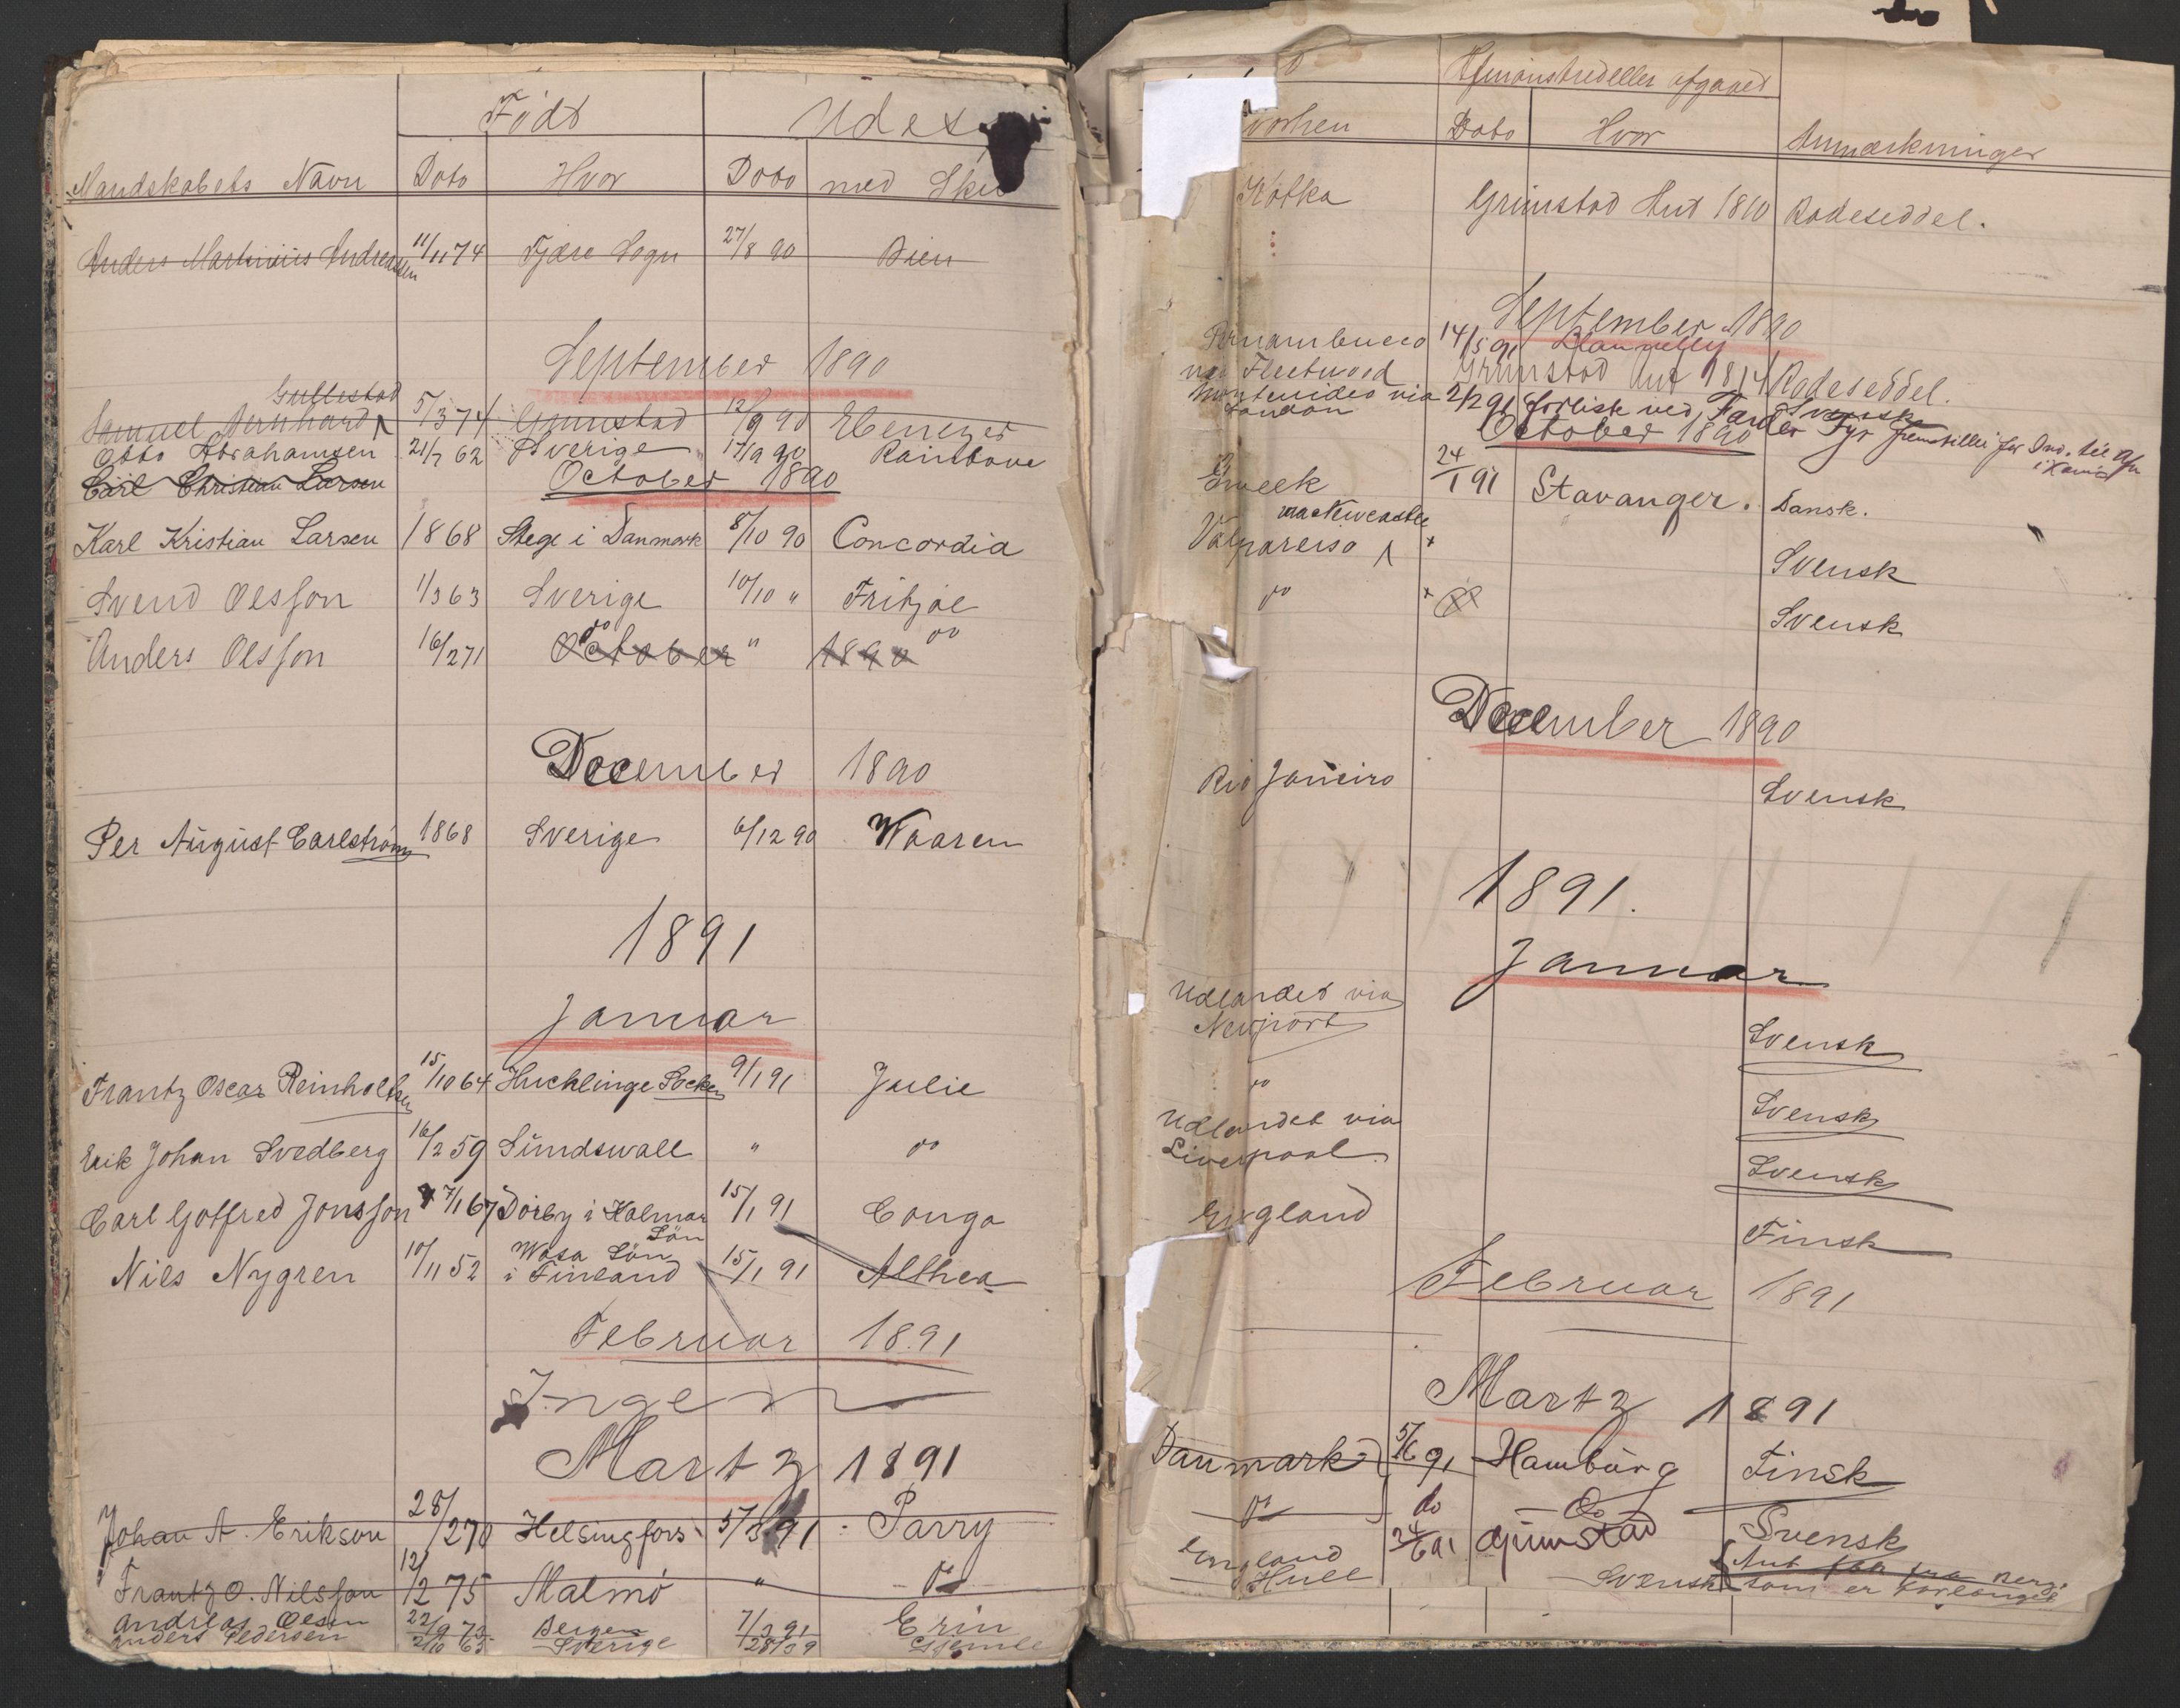 Født Udes
Mandskabets Navn Dato Hvor Dato med Skib
Anders Martinius Andreassen 11/11 74 Fjære Sogn 27/8 90 Dien
September 1890
Gullestad
Samuel Bernhard 5/3 74 Grimstad 12/9 90 Ebenezer
Otto Abrahamsen 21/7 62 Sverige 17/9 90 Rainbove
Carl Christian Larsen October 1890
Karl Kristian Larsen 1868 Stege i Danmark 8/10 90 Concordia
Svend Olsson 1/3 63 Sverige 10/10 " Fritjol
Anders Olsson 16/2 71 do " do
October 1890
December 1890
Per August Carlström 1868 Sverige 6/12 90 Waaren
1891
Januar
Frantz Oscar Reinholtsen 15/10 64 Huchlinge Socken 9/1 91 Julie
Erik Johan Svedberg 16/2 59 Sundswall " do
Carl Gotfred Jonsson 7/1 67 Dörby i Kalmar Län 15/1 91 Congo
Nils Nygren 10/11 52 Wasa Län i Finland 15/1 91 Althea
Februar 1891
Ingen
Martz 1891
Johan A. Erikson 28/2 70 Helsingfors 5/3 91 Parry
Frantz O. Nilsson 12/2 75 Malmö " do
Andreas Olsen 22/9 73 Bergen 7/3 91 Erin
Anders Pedersen 2/10 65 Sverige 28/3 9
Afmønstred eller afgaaed
Hvorhen Dato Hvor Anmærkninger
Kotka Grimstad Ant 1810 Rodeseddel.
September 1890
Pernambuco 14/5 91 Llannelly
via Fleetwood Grimstad Ant 1814 Rodeseddel.
Montevideo via London 2/2 91 forlist ved Færder Fyr Svensk
October 1890
24/1 91 Stavanger. Dansk.
Valparaiso via Newcastle Svensk
do Svensk
December 1890
Rio Janeiro Svensk
1891.
Januar
Udlandet via
Newport Svensk
do Svensk
Udlandet via
Liverpool Svensk
England Finsk
Februar 1891
Martz 1891
Danmark 5/6 91 Hamburg Finsk
do do Do Svensk
England 24/6 91 Grimstad
Hull Svensk som er forlangt